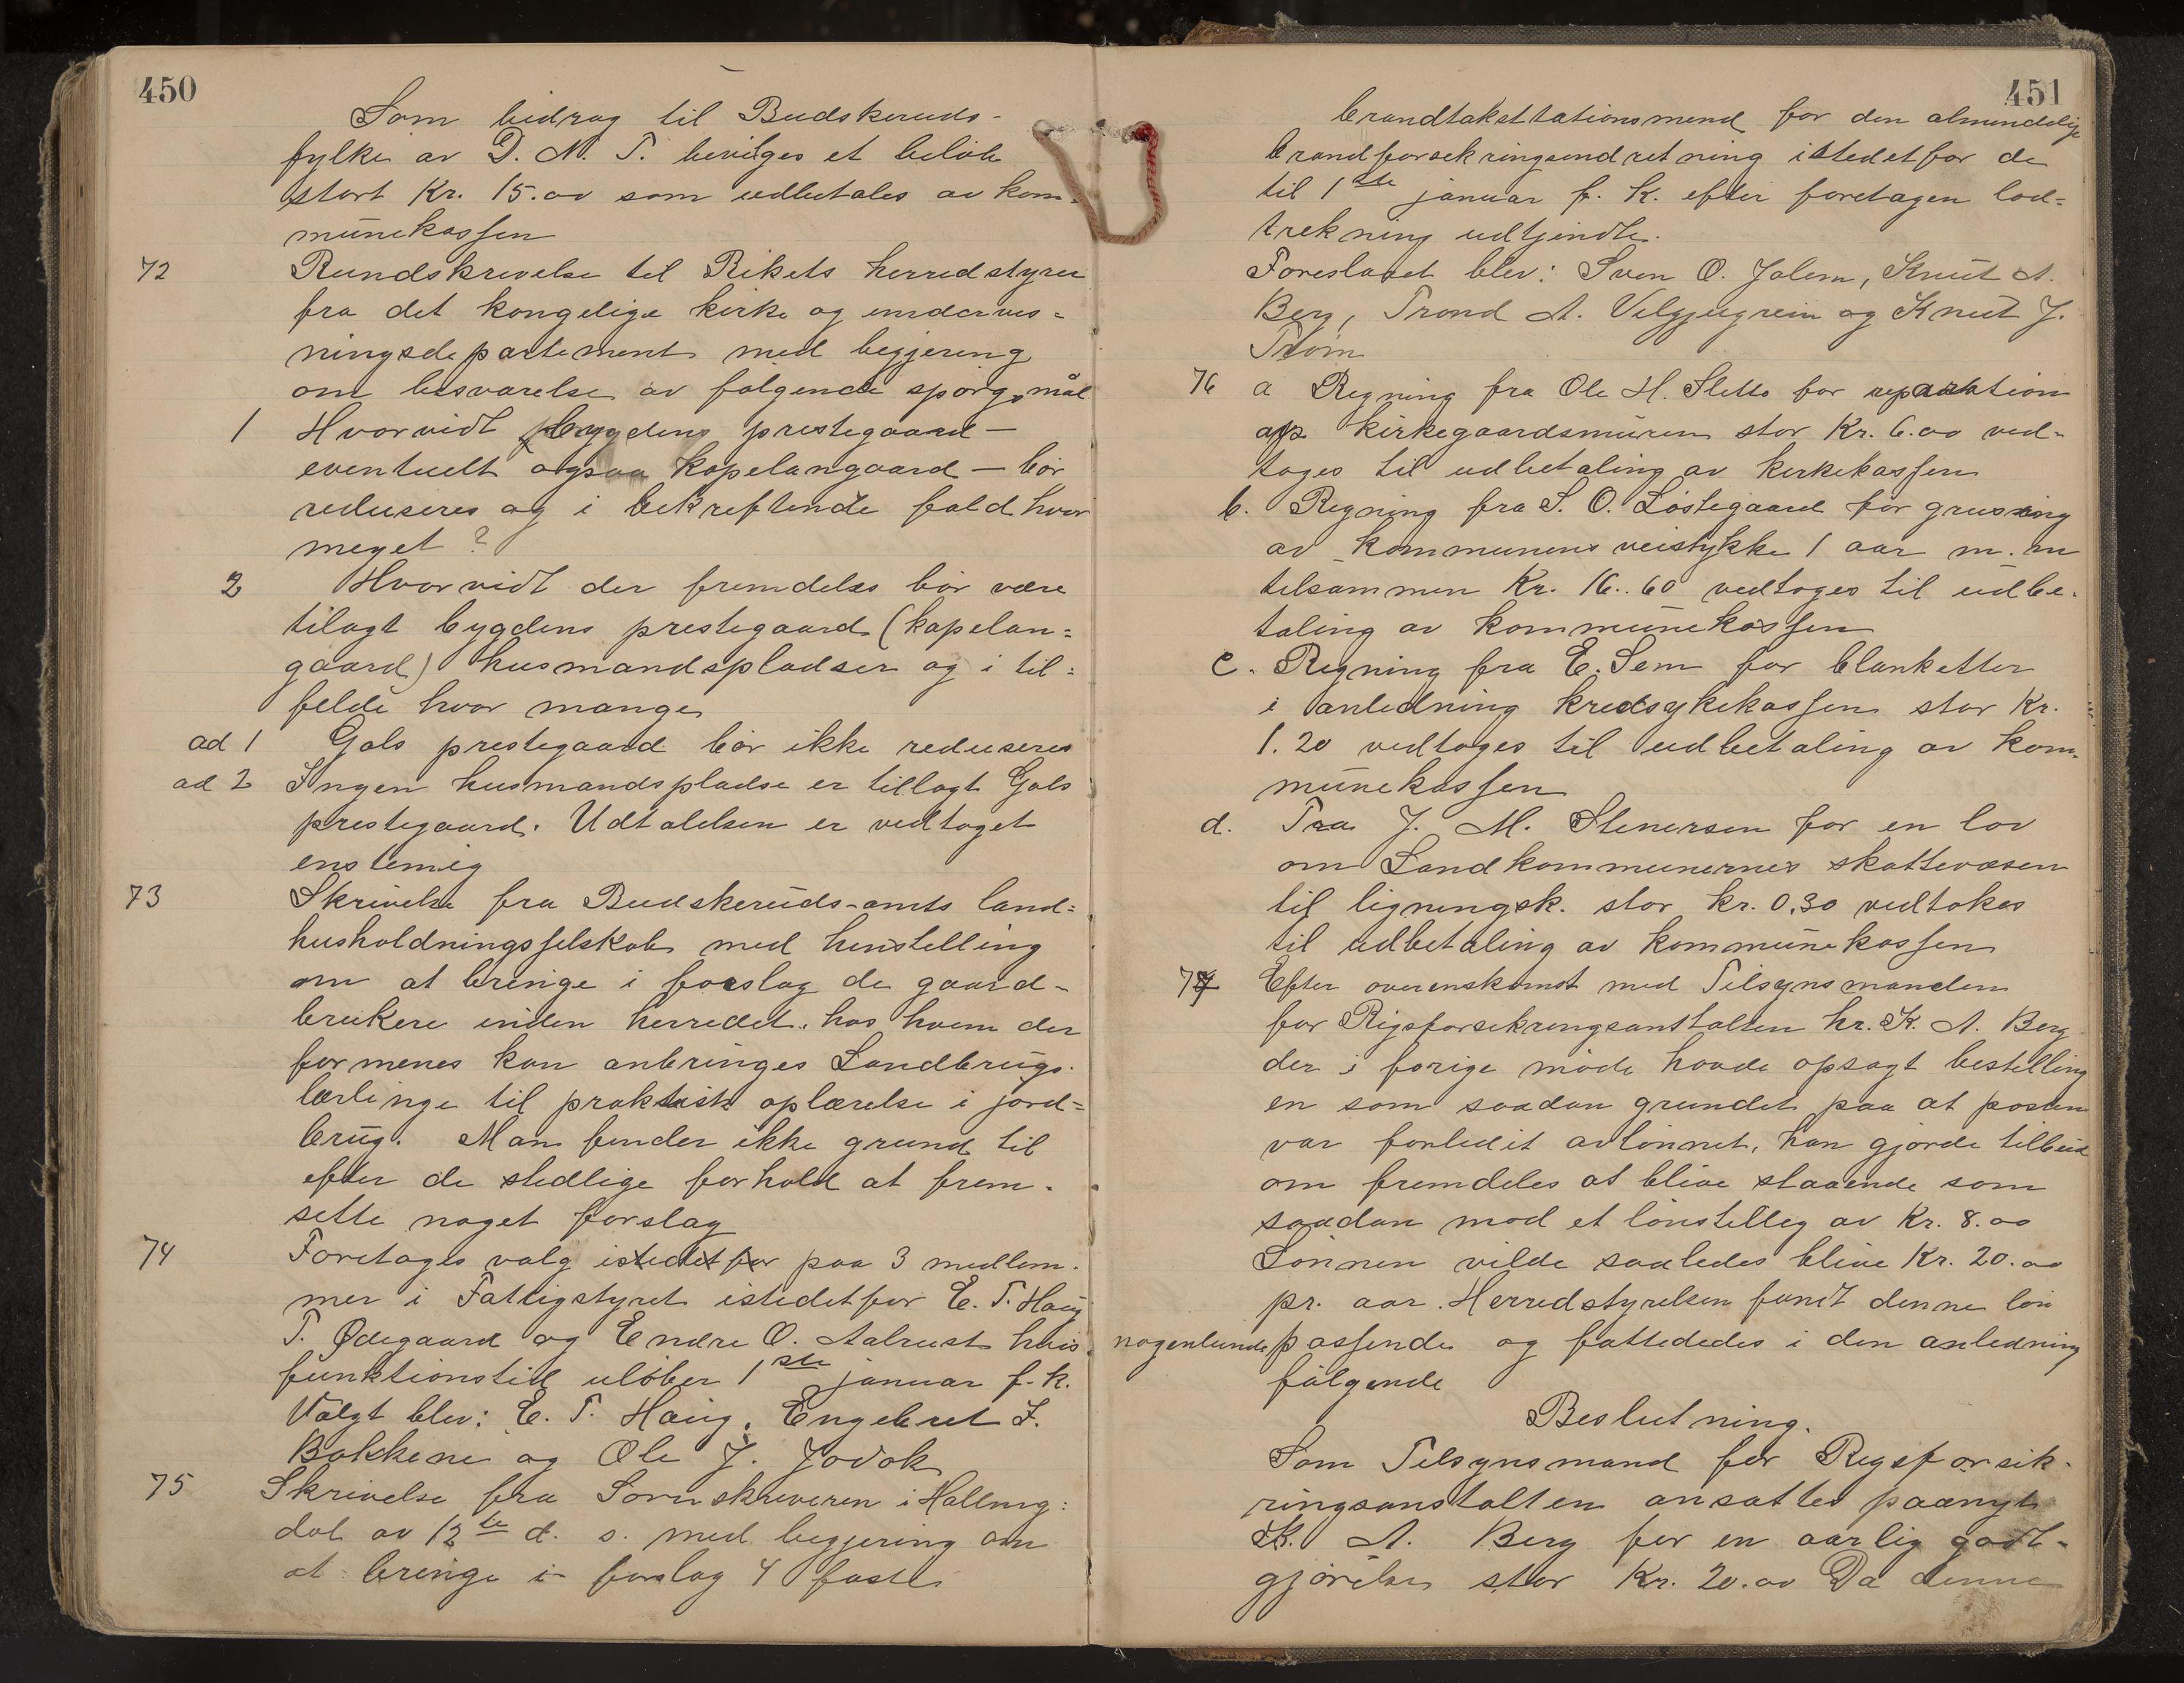 450
Som bidrag til Budskeruds-
fylke av D. N. T. bevilges et beløb
stort Kr. 15.00 som udbetales av kom-
munekassen
72 Rundskrivelse til Rikets herredstyrer
fra det kongelige kirke og undervis=
ningsdepartement med begjering
om besvarelse av følgende spørgsmål
1 Hvorvidt bygdens prestegaard —
eventuelt ogsaa kapelangaard — bør
reduseres og i bekreftende fald hvor
meget?
2 Hvorvidt der fremdeles bør være
tilagt bygdens prestegaard (kapelan=
gaard) husmandspladser og i til=
felde hvor mange
ad 1 Gols prestegaard bør ikke reduseres
ad 2 Ingen husmandspladse er tillagt Gols
prestegaard. Udtalelsen er vedtaget
enstemig
73 Skrivelse fra Budskeruds-amts land=
husholdningsselskab med henstelling
om at bringe i forslag de gaard-
brukere inden herredet. hos hvem der
formenes kan anbringes Landbrugs-
lærlinge til praktisk oplærelse i jord=
brug. Man finder ikke grund til
efter de stedlige forhold at frem-
sette noget forslag
74 Foretoges valg istedetfor paa 3 medlem-
mer i Fattigstyret istedetfor E. T. Haug
T. Ødegaard og Endre O. Aalrust hvis
funktionstid uløber 1ste januar f.k.
Valgt blev: E. T. Haug, Engebret I.
Bakkene og Ole J. Jovok
75 Skrivelse fra Sorenskriveren i Halling=
dal av 12te d. s. med begjering om
at bringe i forslag 4 faste
451
brandtakstationsmend for den almindelige
brandforsekringsindretning istedetfor de
til 1ste januar f. k. efter foretagen lod=
trekning udtjendte.
Foreslaaet blev: Sven O. Jolem, Knut A.
Berg, Trond A. Velgjugrein og Knut J.
Trøim
76 a Regning fra Ole H. Sletto for reparation
af kirkegaardsmuren stor Kr. 6.00 ved-
toges til udbetaling av kirkekassen
b. Regning fra S. O. Løstegaard for grusing
av kommunens veistykke 1 aar m.m
tilsammen Kr. 16..60 vedtoges til udbe-
taling av kommunekassen
c. Regning fra E. Sem for blanketter
i anledning kredsykekassen stor Kr.
1.20 vedtoges til udbetaling av kom-
munekassen
d. Fra J. M. Stenersen for en lov
om Landkommunernes skattevæsen
til ligningsk. stor kr. 0.30 vedtokes
til udbetaling av kommunekassen
77 Efter overenskomst med Tilsynsmanden
for Rigsforsekringsanstalten hr. K. A. Berg
der i forige møde havde opsagt bestelling
en som saadan grundet paa at posten
var forledit avlønnet, han gjorde tilbud
om fremdeles at blive staaende som
saadan mod et lønstilleg av Kr. 8.00
Lønnen vilde saaledes blive Kr. 20.00
pr. aar. Herredstyrelsen fandt denne løn
nogenlunde passende og fattededes i den anledning
følgende
Beslutning.
Som Tilsynsmand for Rigsforsik-
ringsanstalten ansattes paanyt
K. A. Berg for en aarlig godt-
gjørelse stor Kr. 20.00 Da denne